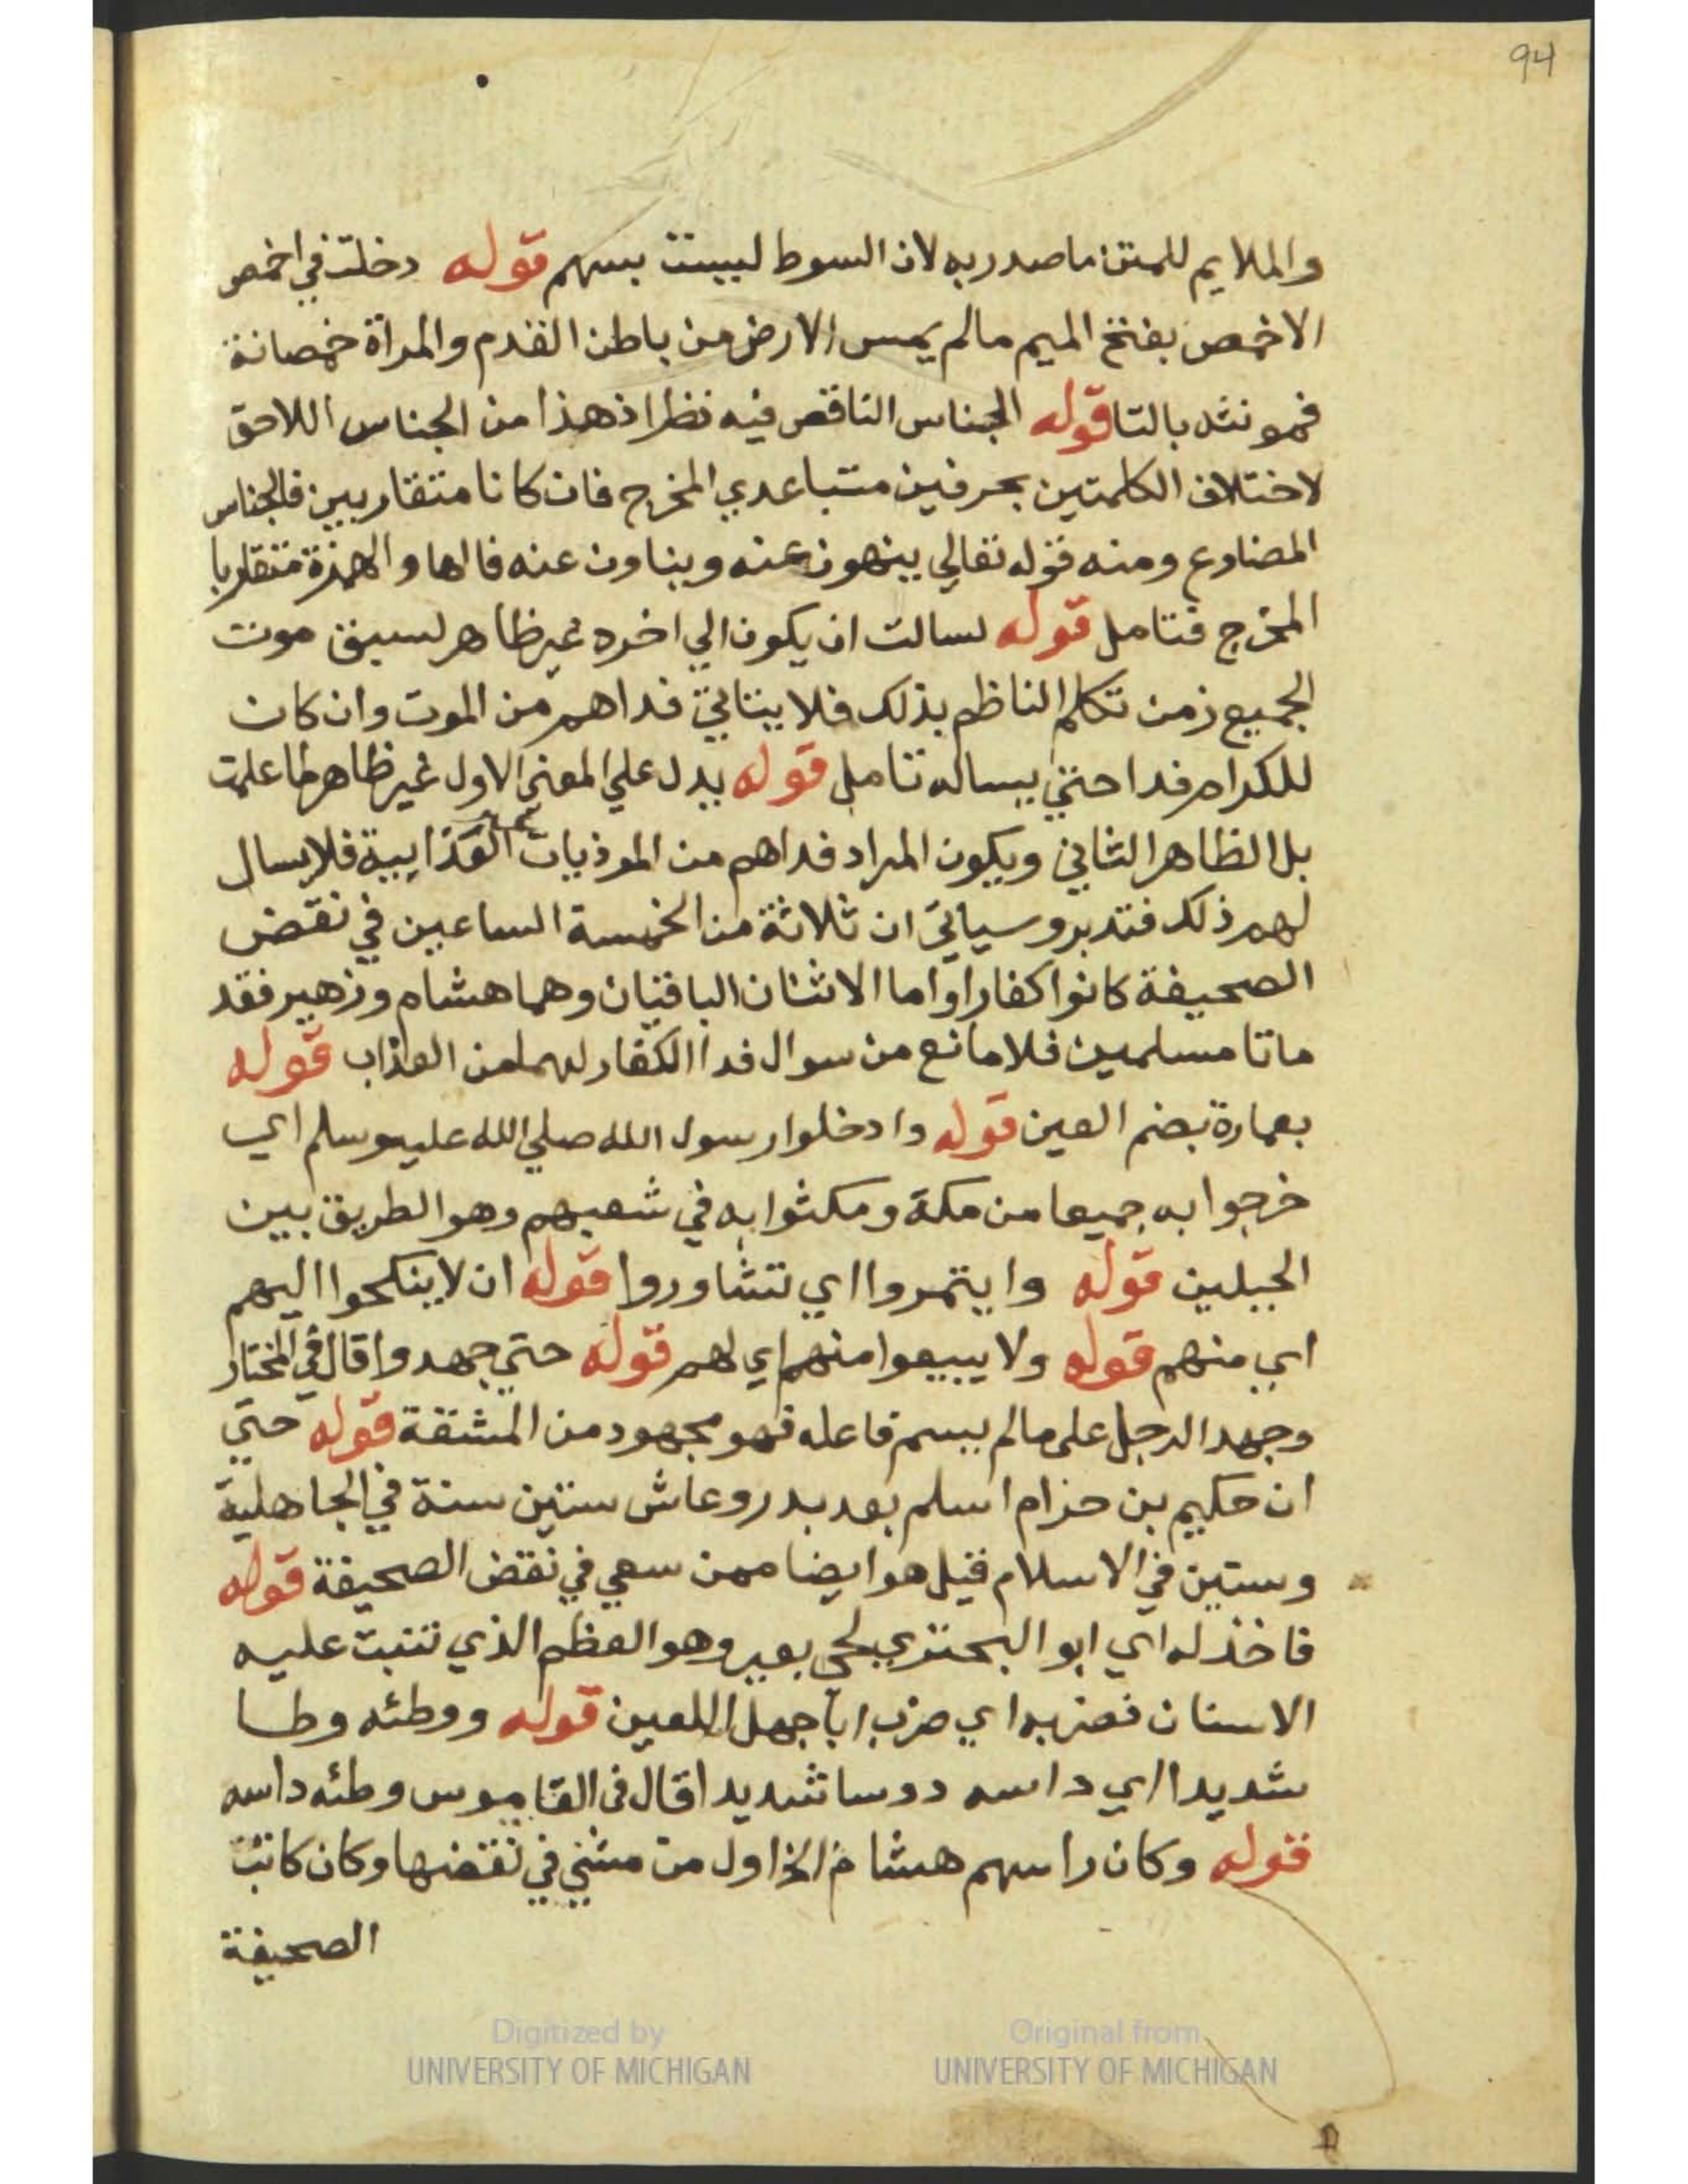 94
والملايم للمتن ما صدر به لان السوط ليست بسهم قوله دخلت في اخمص
الاخمص بفتح الميم ما لم يمس الارض من باطن القدم والمراة خمصانة
فمونثه بالتا قوله الجناس الناقص فيه نظر اذ هذا من الجناس اللاحق
لاختلاف الكلمتين بحرفين متباعدي المخرج فان كانا متقاربين فالجناس
المضارع ومنه قوله تعالي ينهون عنه ويناون عنه فالها والهمزة متقاربا
المخرج فتامل قوله لسالت ان يكون الي اخره غير ظاهر لسبق موت
الجميع زمن تكلم الناظم بذلك فلا يتاتي فداهم من الموت وان كان
للكرام فدا حتي يساله تامل قوله يدل علي المعني الاول غير ظاهر لما علمت
بل الظاهر الثاني ويكون المراد فداهم من الموذيات العذابية فلا يسال
لهم ذلك فتدبر وسياتي ان ثلاثة من الخمسة الساعين في نقض
الصحيفة كانوا كفارا واما الاثنان الباقيان وهما هشام وزهير فقد
ماتا مسلمين فلا مانع من سوال فدا الكفار لهما من العذاب قوله
بعمارة بضم العين قوله وادخلوا رسول الله صلي الله عليه وسلم اي
خرجوا به جميعا من مكة ومكثوا به في شعبهم وهو الطريق بين
الجبلين قوله وايتمروا اي تشاوروا قوله ان لا ينكحوا اليهم
اي منهم قوله ولا يبيعوا منهم اي لهم قوله حتي جهدوا قال في المختار
وجهد الرجل علي ما لم يسم فاعله فهو مجهود من المشقة قوله حتي
ان حكيم بن حزام اسلم بعد بدر وعاش ستين سنة في الجاهلية
وستين في الاسلام قيل هو ايضا ممن سعي في نقض الصحيفة قوله
فاخذ له اي ابو البحتري لحي بعير وهو العظم الذي تنبت عليه
الاسنان فضربه اي ضرب ابا جهل اللعين قوله ووطئه وطا
شديدا اي داسه دوسا شديدا قال في القاموس وطئه داسه
قوله وكان راسهم هشام الخ اول من مشي في نقضها وكان كاتب
الصحيفة
Digitized by
UNIVERSITY OF MICHIGAN
Original from
UNIVERSITY OF MICHIGAN